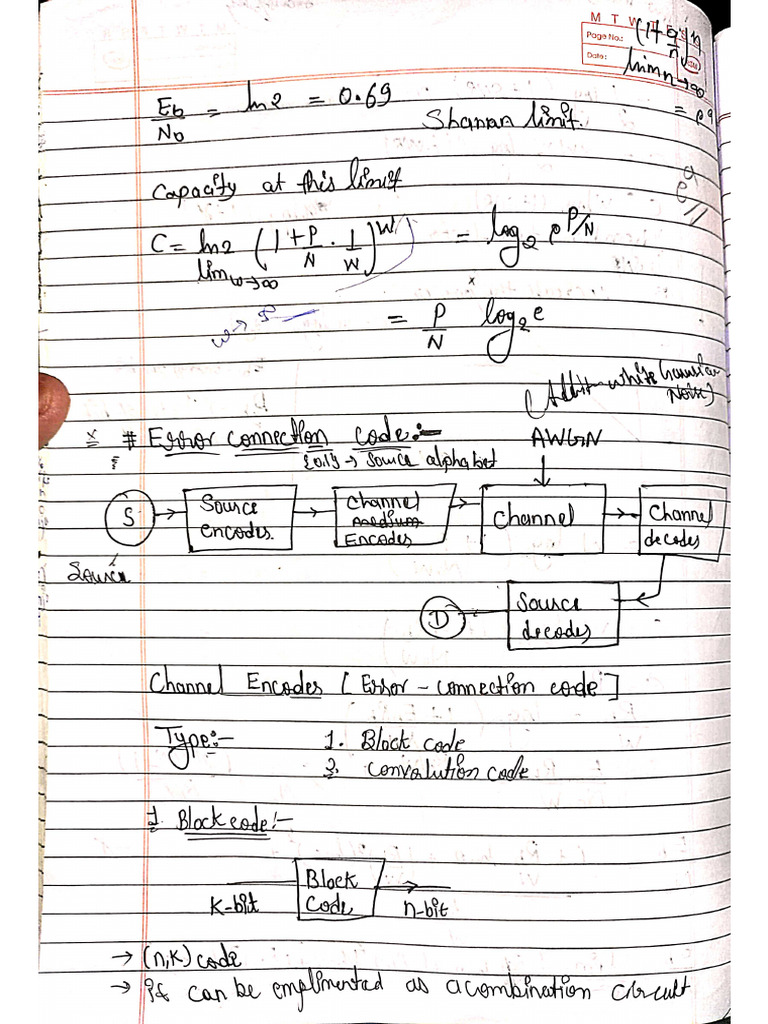 M T W T F S
Page No.:
Date:
(1+q/n)^n
lim n→∞
= e^q
Eb/No = ln2 = 0.69
Shanan limit.
Capacity at this limit
C = ln2 (1+P/N · 1/W)^W = log₂ e^P/N
lim w→∞
= P/N log₂e
(Addit-white Gaussian
Noise)
# Error connection code:-
AWGN
{0,1} → Source alphabet
S
Source
encodes.
Channel
Encodes
Channel
Channel
decodes
Source
D
Source
decodes
Channel Encodes [Error-connection code]
Type:-
1. Block code
2. Convolution code
1. Block code:-
K-bit
Block
Code
n-bit
→ (n,k) code
→ if can be emplimented as a combination circuit